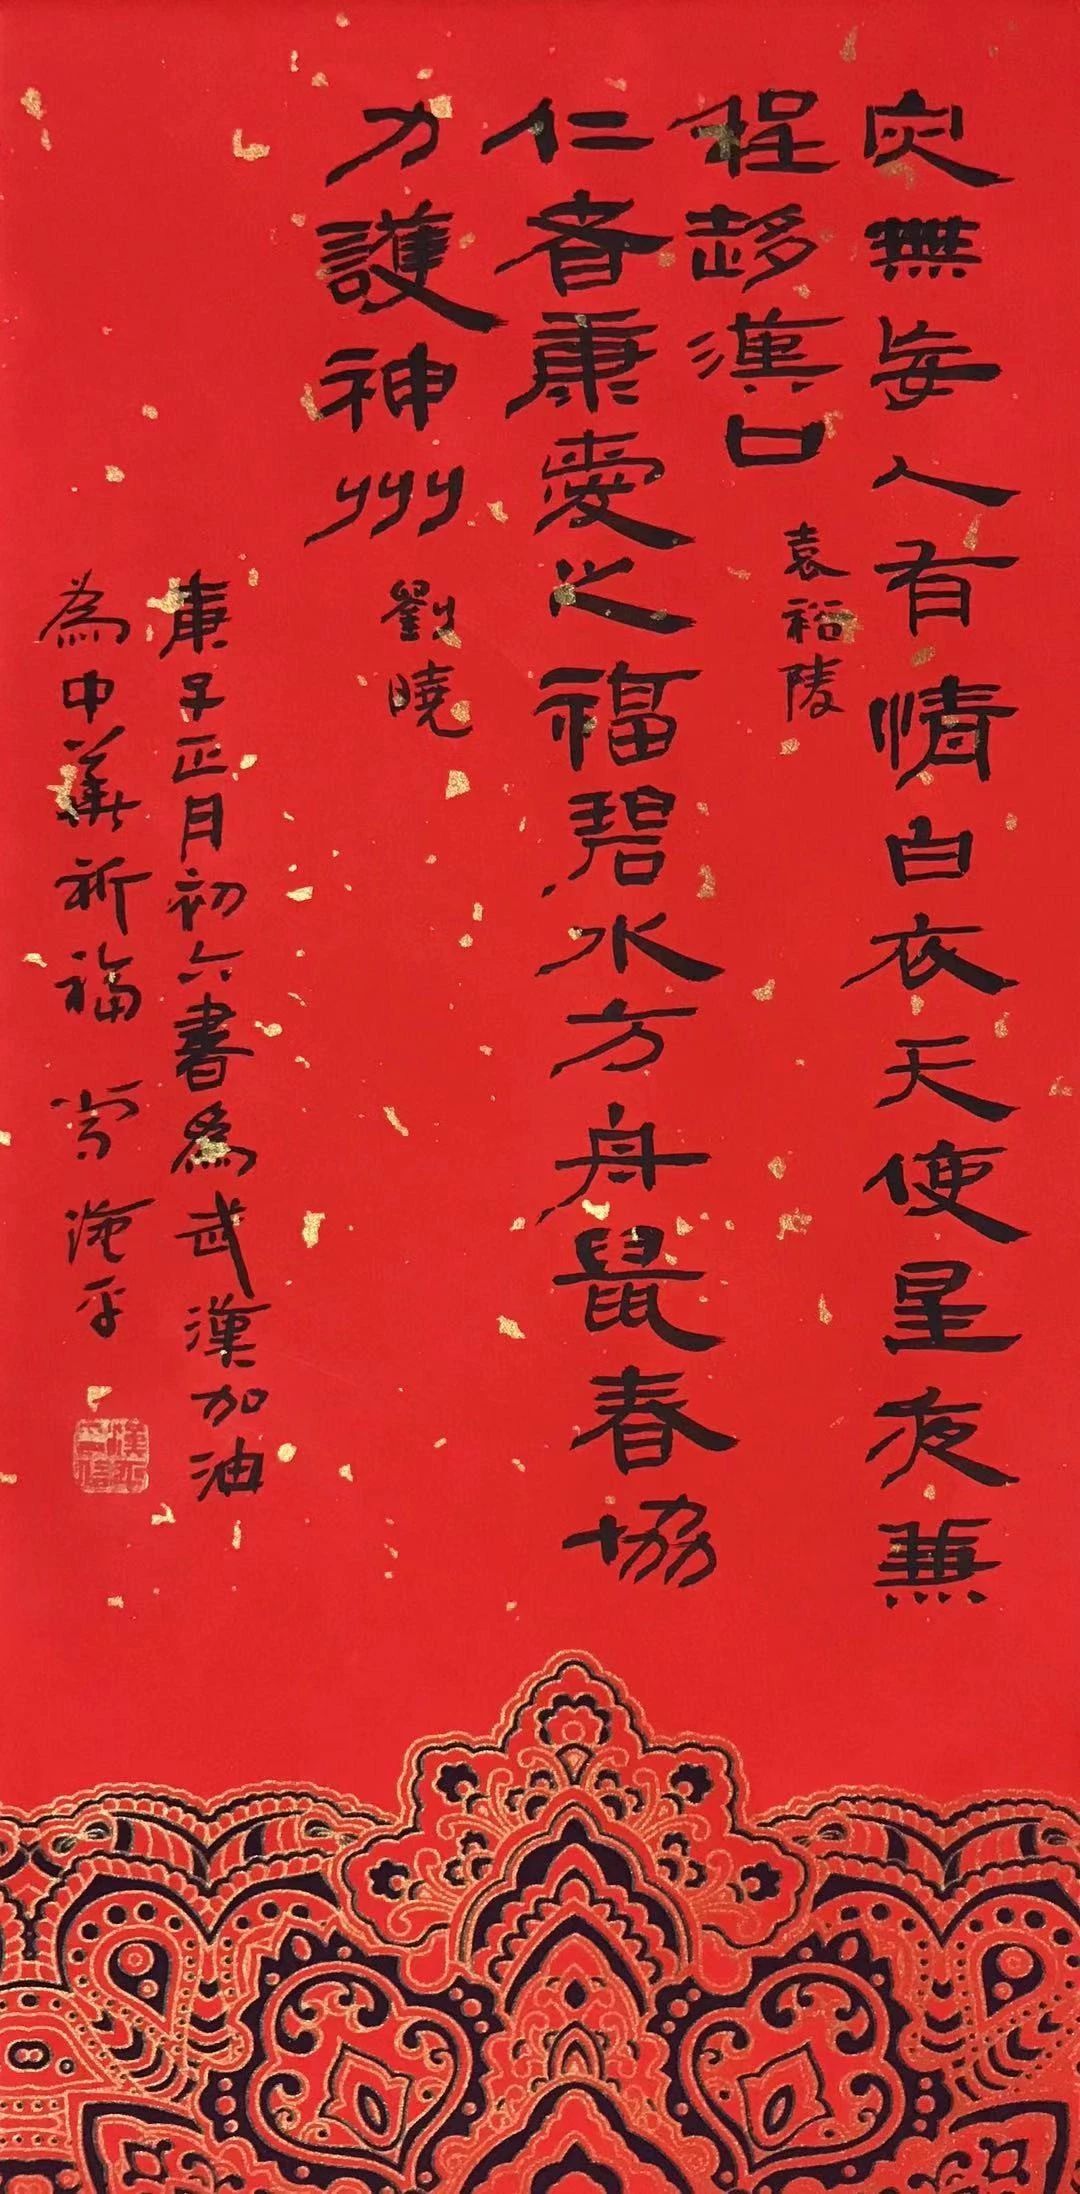 灾無妄人有情白衣天使星夜兼
程趍漢口 袁裕陵
仁者康愛之福碧水方舟鼠春協
力護神州 劉曉
庚子正月初六書為武漢加油
為中華祈福